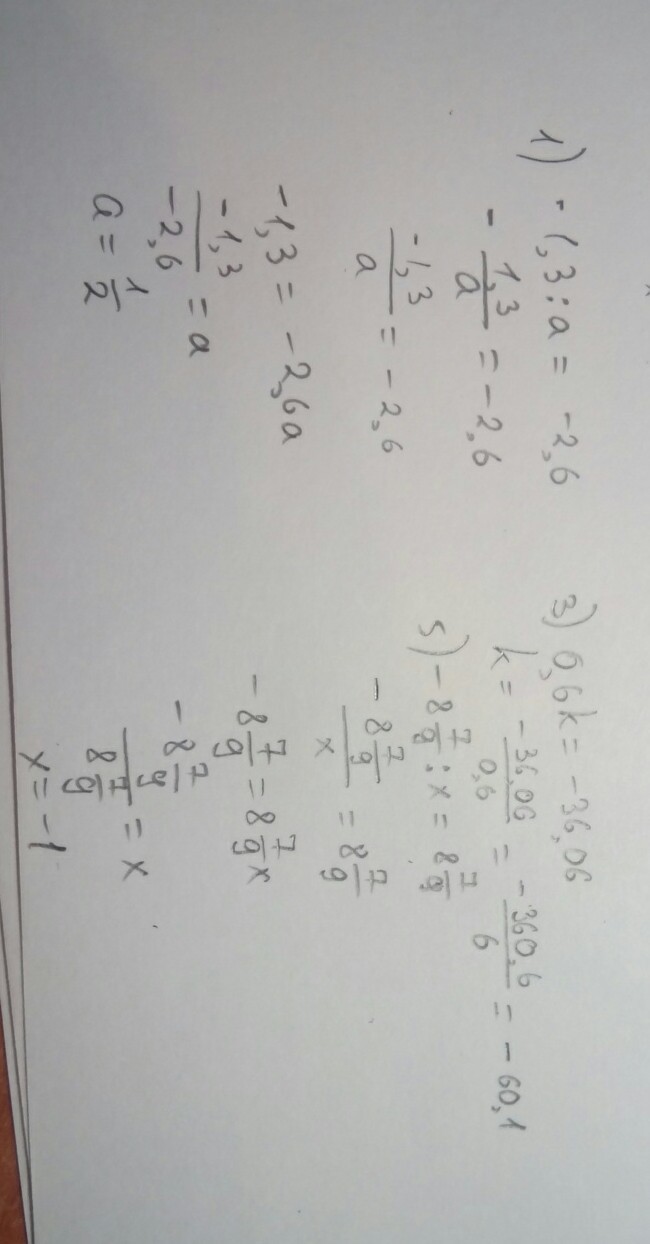 1) -1,3 : a = -2,6
- 1,3/a = -2,6
-1,3/a = -2,6
-1,3 = -2,6a
-1,3/-2,6 = a
a = 1/2
3) 0,6k = -36,06
k = -36,06/0,6 = -360,6/6 = -60,1
5) -8 7/9 : x = 8 7/9
-8 7/9 / x = 8 7/9
-8 7/9 = 8 7/9 x
-8 7/9 / 8 7/9 = x
x = -1